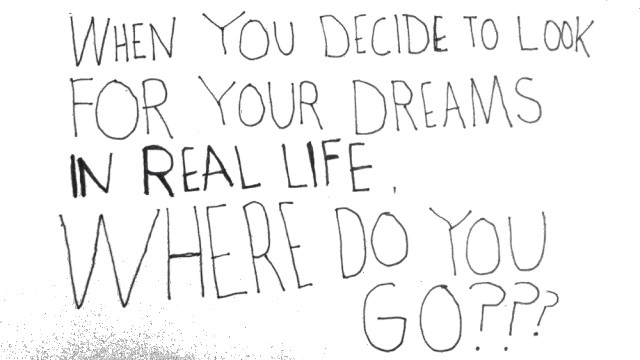 WHEN YOU DECIDE TO LOOK
FOR YOUR DREAMS
IN REAL LIFE,
WHERE DO YOU
GO???